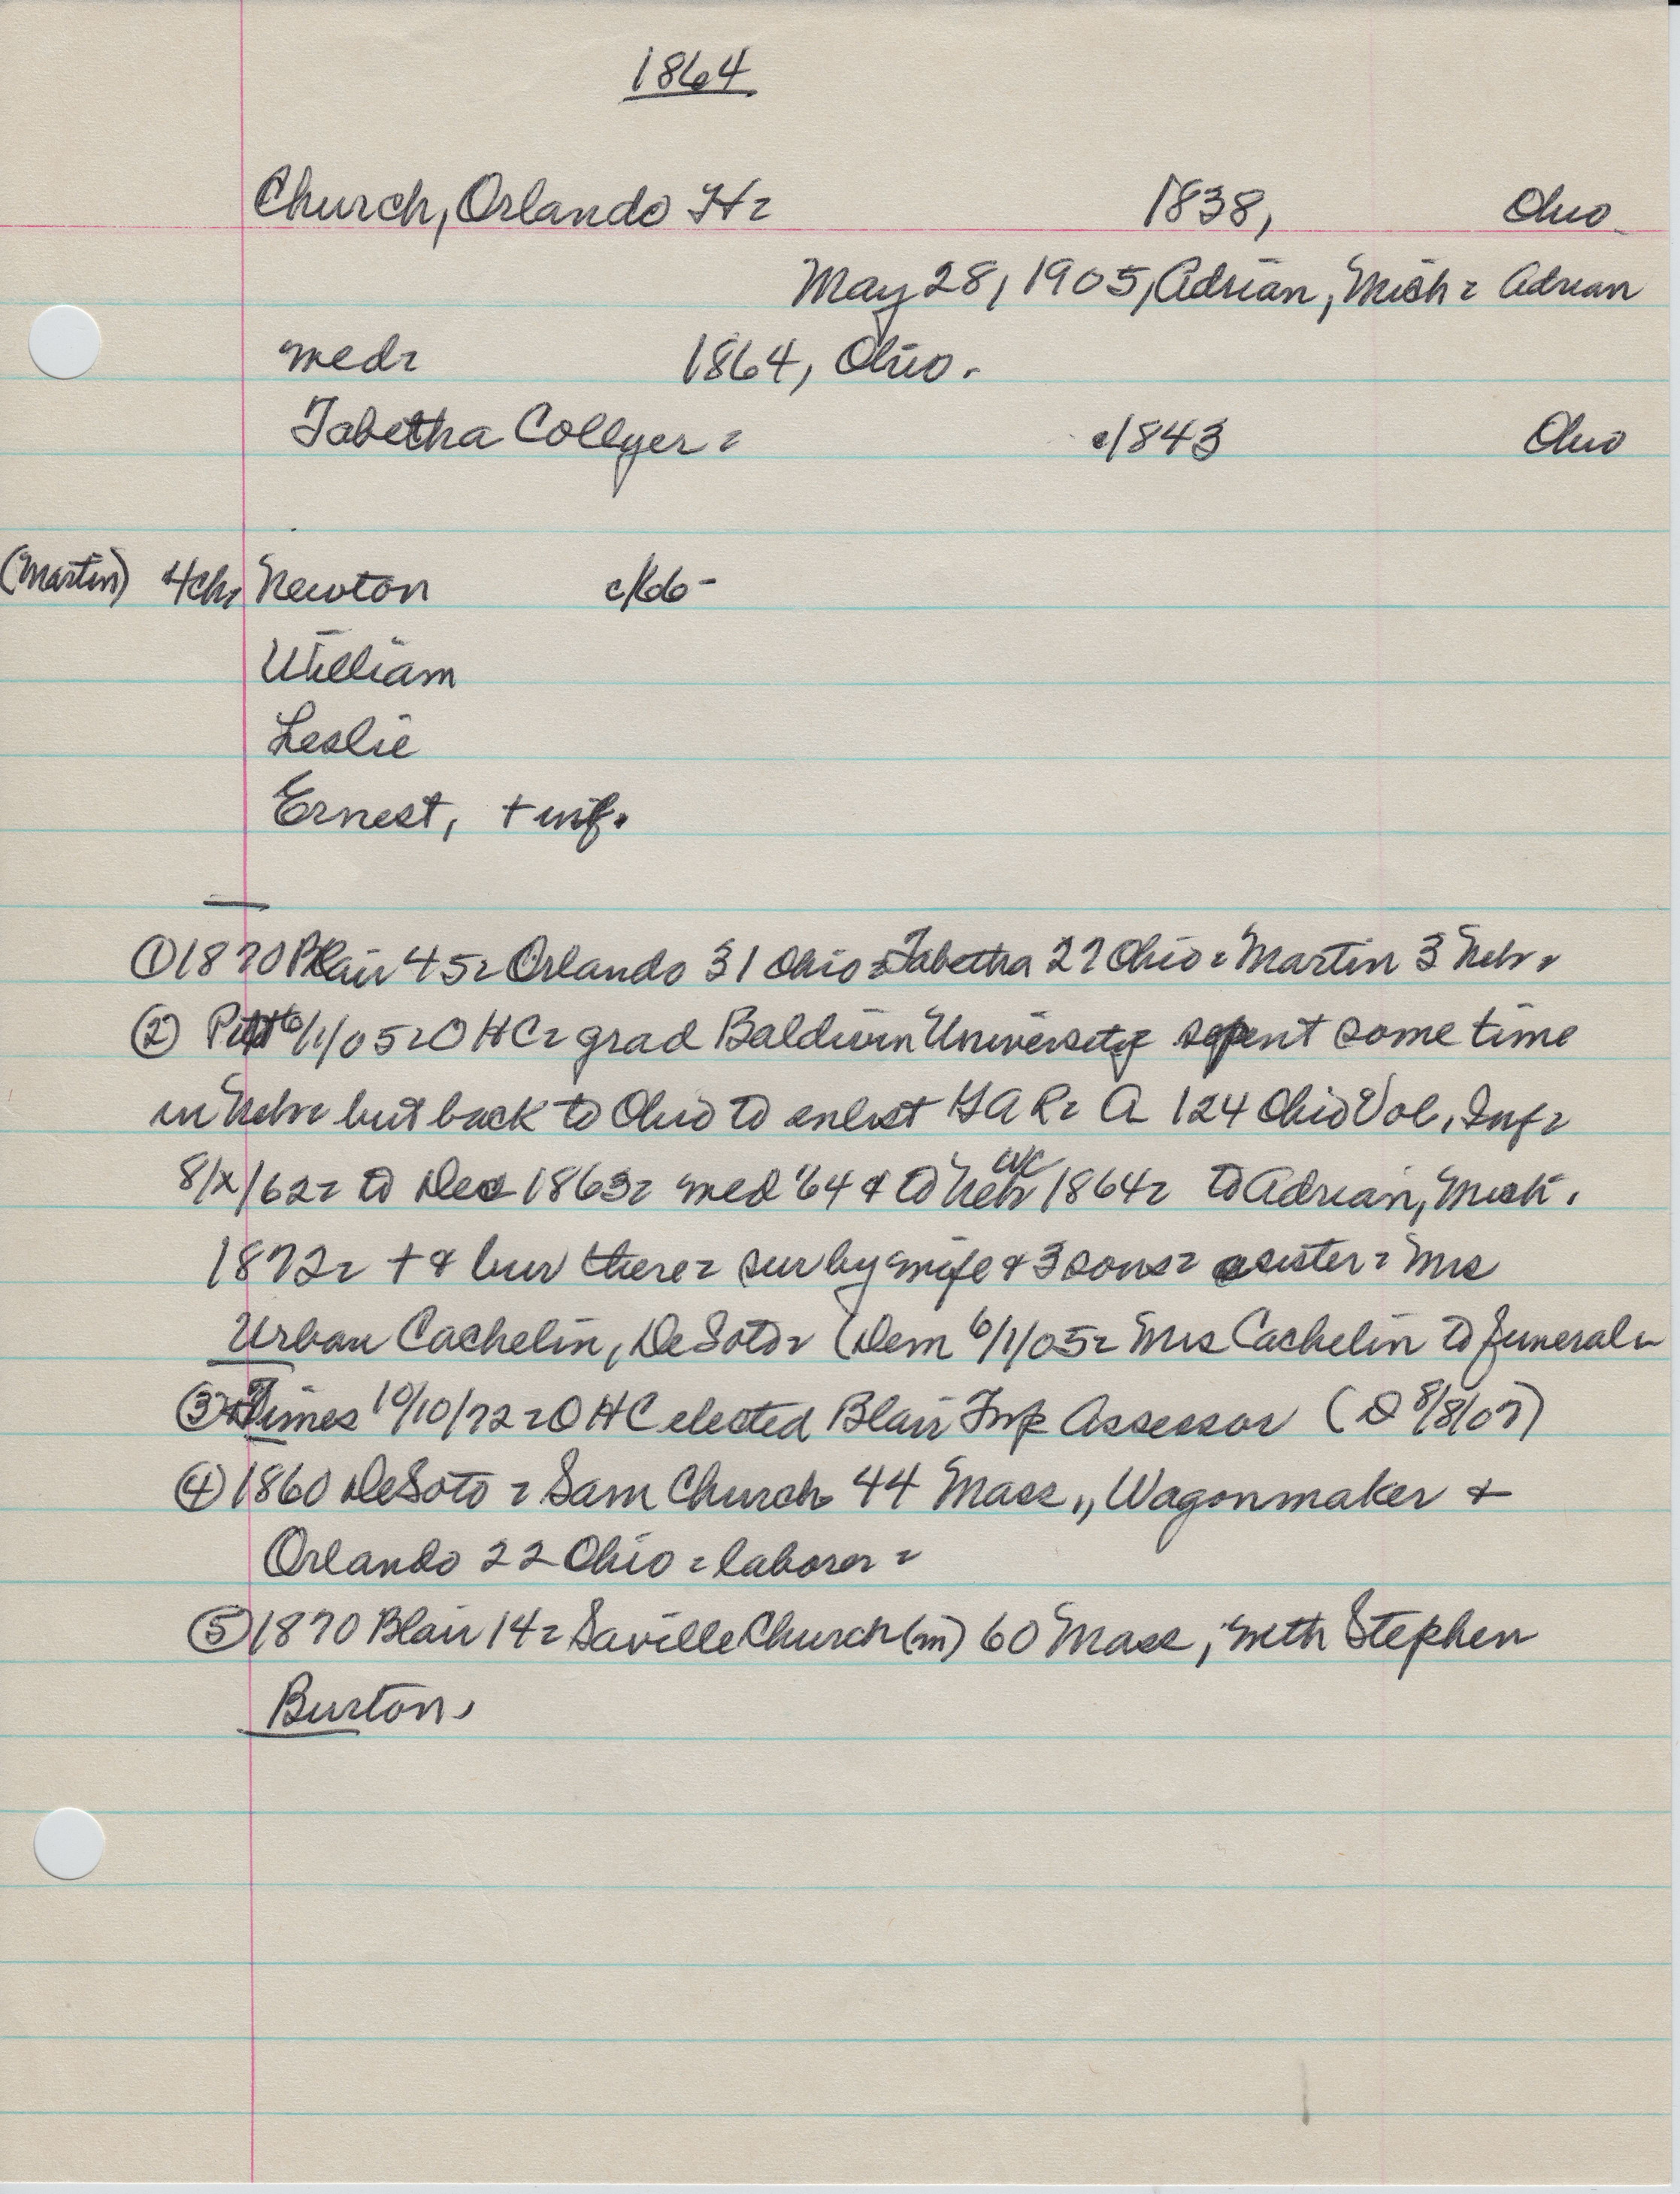 1864
Church, Orlando H= 1838, Ohio
May 28, 1905, Adrian, Mich = Adrian
med= 1864, Ohio.
Tabetha Collyer = c/1843 Ohio
(Martin) 4ch, Newton c/66-
William
Leslie
Ernest, + inf.
① 1870 Blair 45= Orlando 31 Ohio = Tabetha 27 Ohio = Martin 3 Nebr=
② Pilot 6/1/05= O H C= grad Baldwin University spent some time
in Nebr= but back to Ohio to enlist G A R= A 124 Ohio Vol, Inf=
8/x/62= to Dec 1863= med '64 & to Nebr WC 1864= to Adrian, Mich.
1872= + & bur there= sur by wife & 3 sons= sister = Mrs
Urban Cachelin, DeSoto= (Dem 6/1/05= Mrs Cachelin to funeral=
③ Times 10/10/72= O H C elected Blair Twp Assessor (D 8/8/07)
④ 1860 DeSoto = Sam Church 44 Mass,, Wagonmaker +
Orlando 22 Ohio = laborer =
⑤ 1870 Blair 14= Saville Church (m) 60 Mass, with Stephen
Burton,